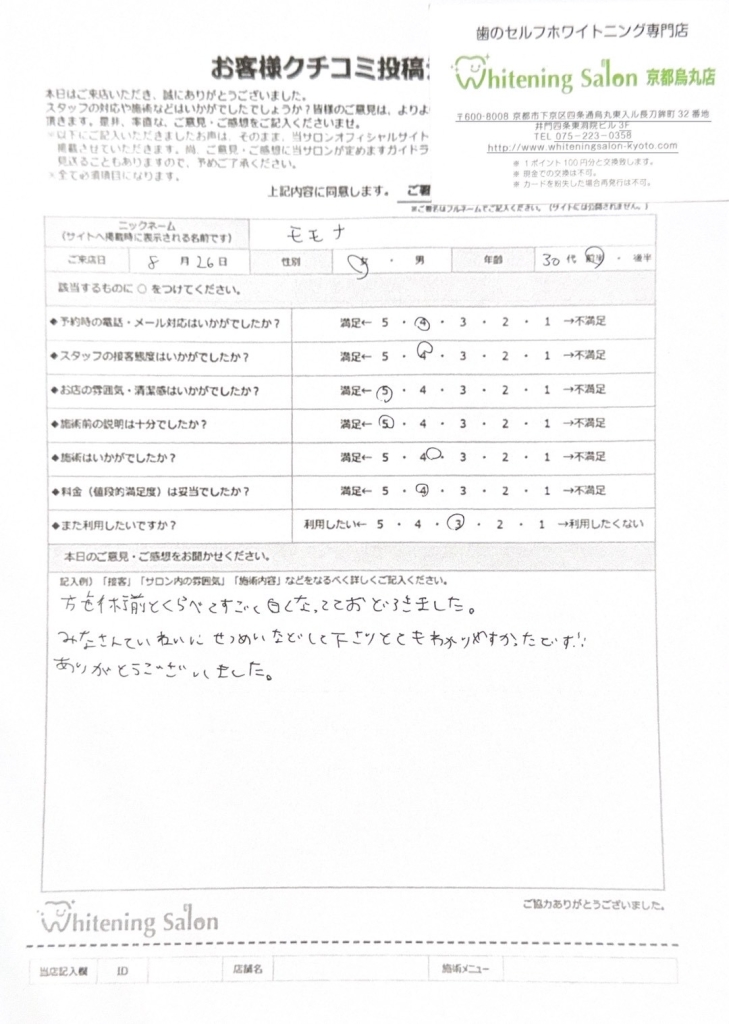 歯のセルフホワイトニング専門店
Whitening Salon 京都烏丸店
〒600-8008 京都市下京区四条通烏丸東入ル長刀鉾町32番地
井門四条東洞院ビル3F
TEL 075-223-0358
http://www.whiteningsalon-kyoto.com
※ 1ポイント100円分と交換致します。
※ 現金での交換は不可。
※ カードを紛失した場合再発行は不可。
お客様クチコミ投稿
本日はご来店いただき、誠にありがとうございました。
スタッフの対応や施術などはいかがでしたでしょうか?皆様のご意見は、よりよ
頂きます。是非、率直な、ご意見・ご感想をご記入くださいませ。
※以下にご記入いただきましたお声は、そのまま、当サロンオフィシャルサイト
掲載させていただきます。尚、ご意見・ご感想に当サロンが定めますガイドラ
見送ることもありますので、予めご了承ください。
※全て必須項目になります。
上記内容に同意します。 ご署
※ご署名はフルネームでご記入ください。(サイトには公開されません。)
ニックネーム
(サイトへ掲載時に表示される名前です) モモナ
ご来店日 8月26日 性別 女・男 年齢 30代 前半・後半
該当するものに○をつけてください。
◆予約時の電話・メール対応はいかがでしたか? 満足← 5 ・ 4 ・ 3 ・ 2 ・ 1 →不満足
◆スタッフの接客態度はいかがでしたか? 満足← 5 ・ 4 ・ 3 ・ 2 ・ 1 →不満足
◆お店の雰囲気・清潔感はいかがでしたか? 満足← 5 ・ 4 ・ 3 ・ 2 ・ 1 →不満足
◆施術前の説明は十分でしたか? 満足← 5 ・ 4 ・ 3 ・ 2 ・ 1 →不満足
◆施術はいかがでしたか? 満足← 5 ・ 4 ・ 3 ・ 2 ・ 1 →不満足
◆料金(値段的満足度)は妥当でしたか? 満足← 5 ・ 4 ・ 3 ・ 2 ・ 1 →不満足
◆また利用したいですか? 利用したい← 5 ・ 4 ・ 3 ・ 2 ・ 1 →利用したくない
本日のご意見・ご感想をお聞かせください。
記入例)「接客」「サロン内の雰囲気」「施術内容」などをなるべく詳しくご記入ください。
前とくらべてすごく白くなってておどろきました。
みなさんていねいにせつめいなどして下さりとてもわかりやすかったです!!
ありがとうございました。
ご協力ありがとうございました。
Whitening Salon
当店記入欄 ID 店舗名 施術メニュー